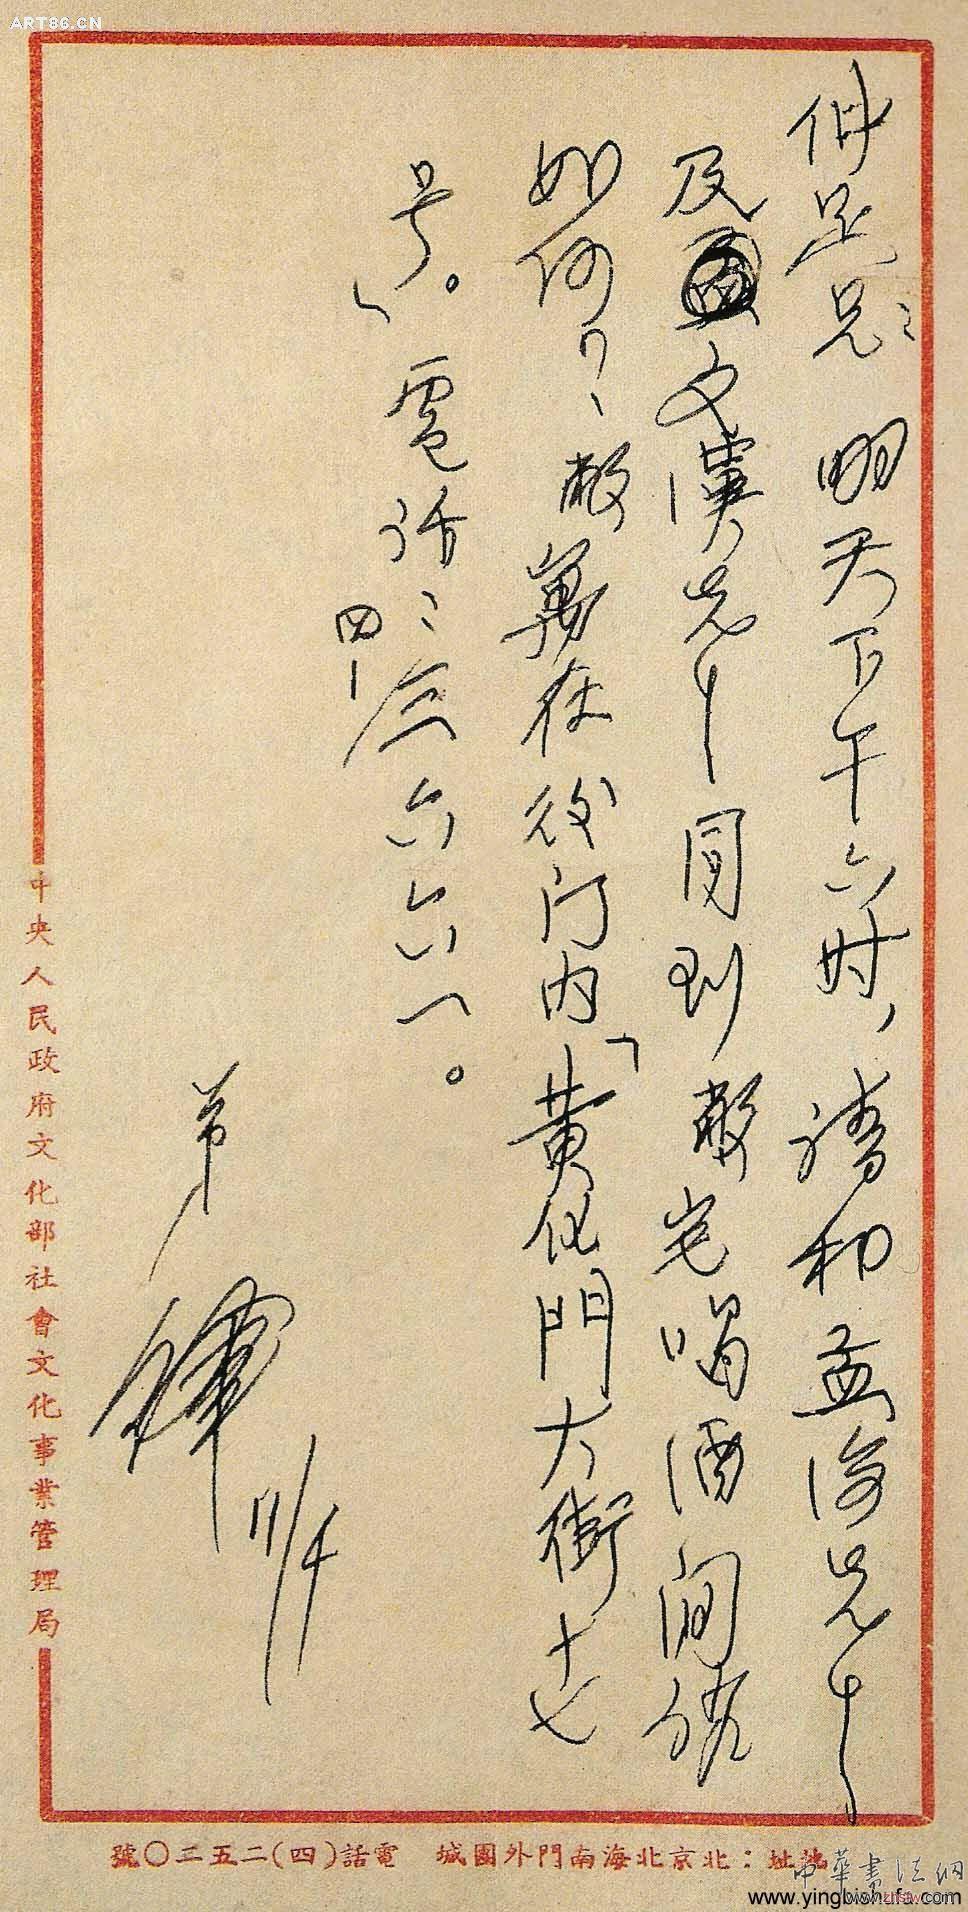 ART86.CN
仲足兄：明天下午六时，请和孟俊兄
及文汉兄同到敝宅喝酒闲谈
如何？敝寓在后门内「黄化門大街十七
号」。電话：四局六六一。
弟
铎
11/4
中央人民政府文化部社會文化事業管理局
地址：北京北海南門外團城 電話(四)二五三〇號
中華書法網
www.yingbishufa.com